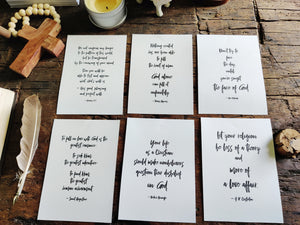 Do not conform any longer
to the pattern of this world,
but be transformed
by the renewing of your mind.
Then you will be
able to test and approve
what God's will is
his good, pleasing
and perfect will.
Nothing created
has ever been able
to fill
the heart of man.
God alone
can fill it
infinitely.
Don't try to
face
the day
until
you've sought
the face of God.
To fall in love with God is the
greatest romance
To seek Him
the greatest adventure
To find Him
the greatest
human achievement
Your life
as a Christian
should make nonbelievers
question their disbelief
in God
let your religion
be less of a theory
and
more of
a love affair
- G.K. Chesterton